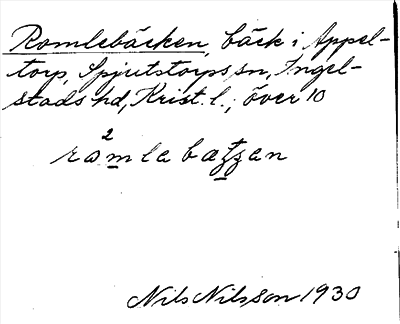 Romlebäcken, bäck i Appel-
torp, Spjutstorps sn, Ingel-
stads hd, Krist. l.; över 10
2
råmlebaʒʒen
Nils Nilsson 1930